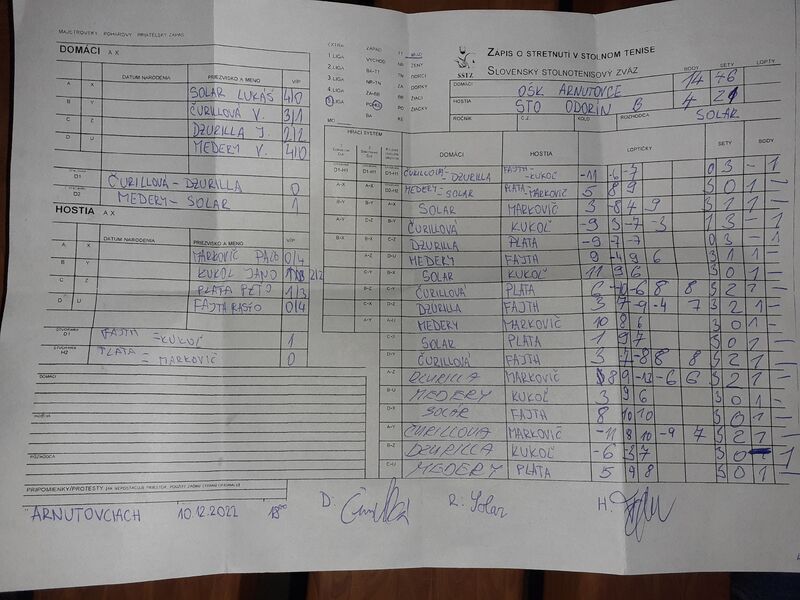 MAJSTROVSKÝ, POHÁROVÝ, PRIATEĽSKÝ ZÁPAS
DOMÁCI A X
DÁTUM NARODENIA PRIEZVISKO A MENO V/P
A X SOLAR LUKÁŠ 4/0
B Y ČURILLOVÁ V. 3/1
C Z DZURILLA J. 2/2
D U MEDERY V. 4/0
D1 ČURILLOVÁ - DZURILLA 0
D2 MEDERY - SOLAR 1
HOSTIA A X
DÁTUM NARODENIA PRIEZVISKO A MENO V/P
A X MARKOVIČ PAĽO 0/4
B Y KUKOĽ JANO 2/2
C Z PLATA PEŤO 1/3
D U FAJTH RASŤO 0/4
D1 FAJTH - KUKOĽ 1
H2 PLATA - MARKOVIČ 0
DOMÁCI
HOSTIA
ROZHODCA
PRIPOMIENKY/PROTESTY
ARNUTOVCIACH 10.12.2022 18:00 D. R. Solar H.
EXTRA ZÁPAD
1 LIGA VÝCHOD
2 LIGA BA-TT
3 LIGA NR-TN
4 LIGA ZA-BB
5 LIGA PO-KE
BA
MUŽI
ŽENY
DORCI
ŽIACI
ŽIAČKY
SSTZ
ZÁPIS O STRETNUTÍ V STOLNOM TENISE
SLOVENSKÝ STOLNOTENISOVÝ ZVÄZ
BODY SETY LOPTY
DOMÁCI OŠK ARNUTOVCE 14 46
HOSTIA STO ODORÍN B 4 21
ROČNÍK Č.Z. KOLO ROZHODCA SOLAR
HRACÍ SYSTÉM DOMÁCI HOSTIA LOPTIČKY SETY BODY
D1-H1 ČURILLOVÁ - DZURILLA FAJTH - KUKOĽ -11 -6 -7 0 3 - 1
MEDERY - SOLAR PLATA - MARKOVIČ 5 8 9 3 0 1 -
SOLAR MARKOVIČ 3 -8 4 9 3 1 1 -
ČURILLOVÁ KUKOĽ -9 3 -7 -3 1 3 - 1
DZURILLA PLATA -9 -7 -7 0 3 - 1
MEDERY FAJTH 9 -4 9 6 3 1 1 -
SOLAR KUKOĽ 11 9 6 3 0 1 -
ČURILLOVÁ PLATA 6 -10 -6 8 8 3 2 1 -
DZURILLA FAJTH 3 7 -9 -4 7 3 2 1 -
MEDERY MARKOVIČ 10 8 6 3 0 1 -
SOLAR PLATA 1 9 7 3 0 1 -
ČURILLOVÁ FAJTH 3 -7 -8 8 8 3 2 1 -
DZURILLA MARKOVIČ 8 9 -13 -6 6 3 2 1 -
MEDERY KUKOĽ 3 9 6 3 0 1 -
SOLAR FAJTH 8 10 10 3 0 1 -
ČURILLOVÁ MARKOVIČ -11 8 10 -9 7 3 2 1 -
DZURILLA KUKOĽ -6 -3 7
MEDERY PLATA 5 9 8 3 0 1 -